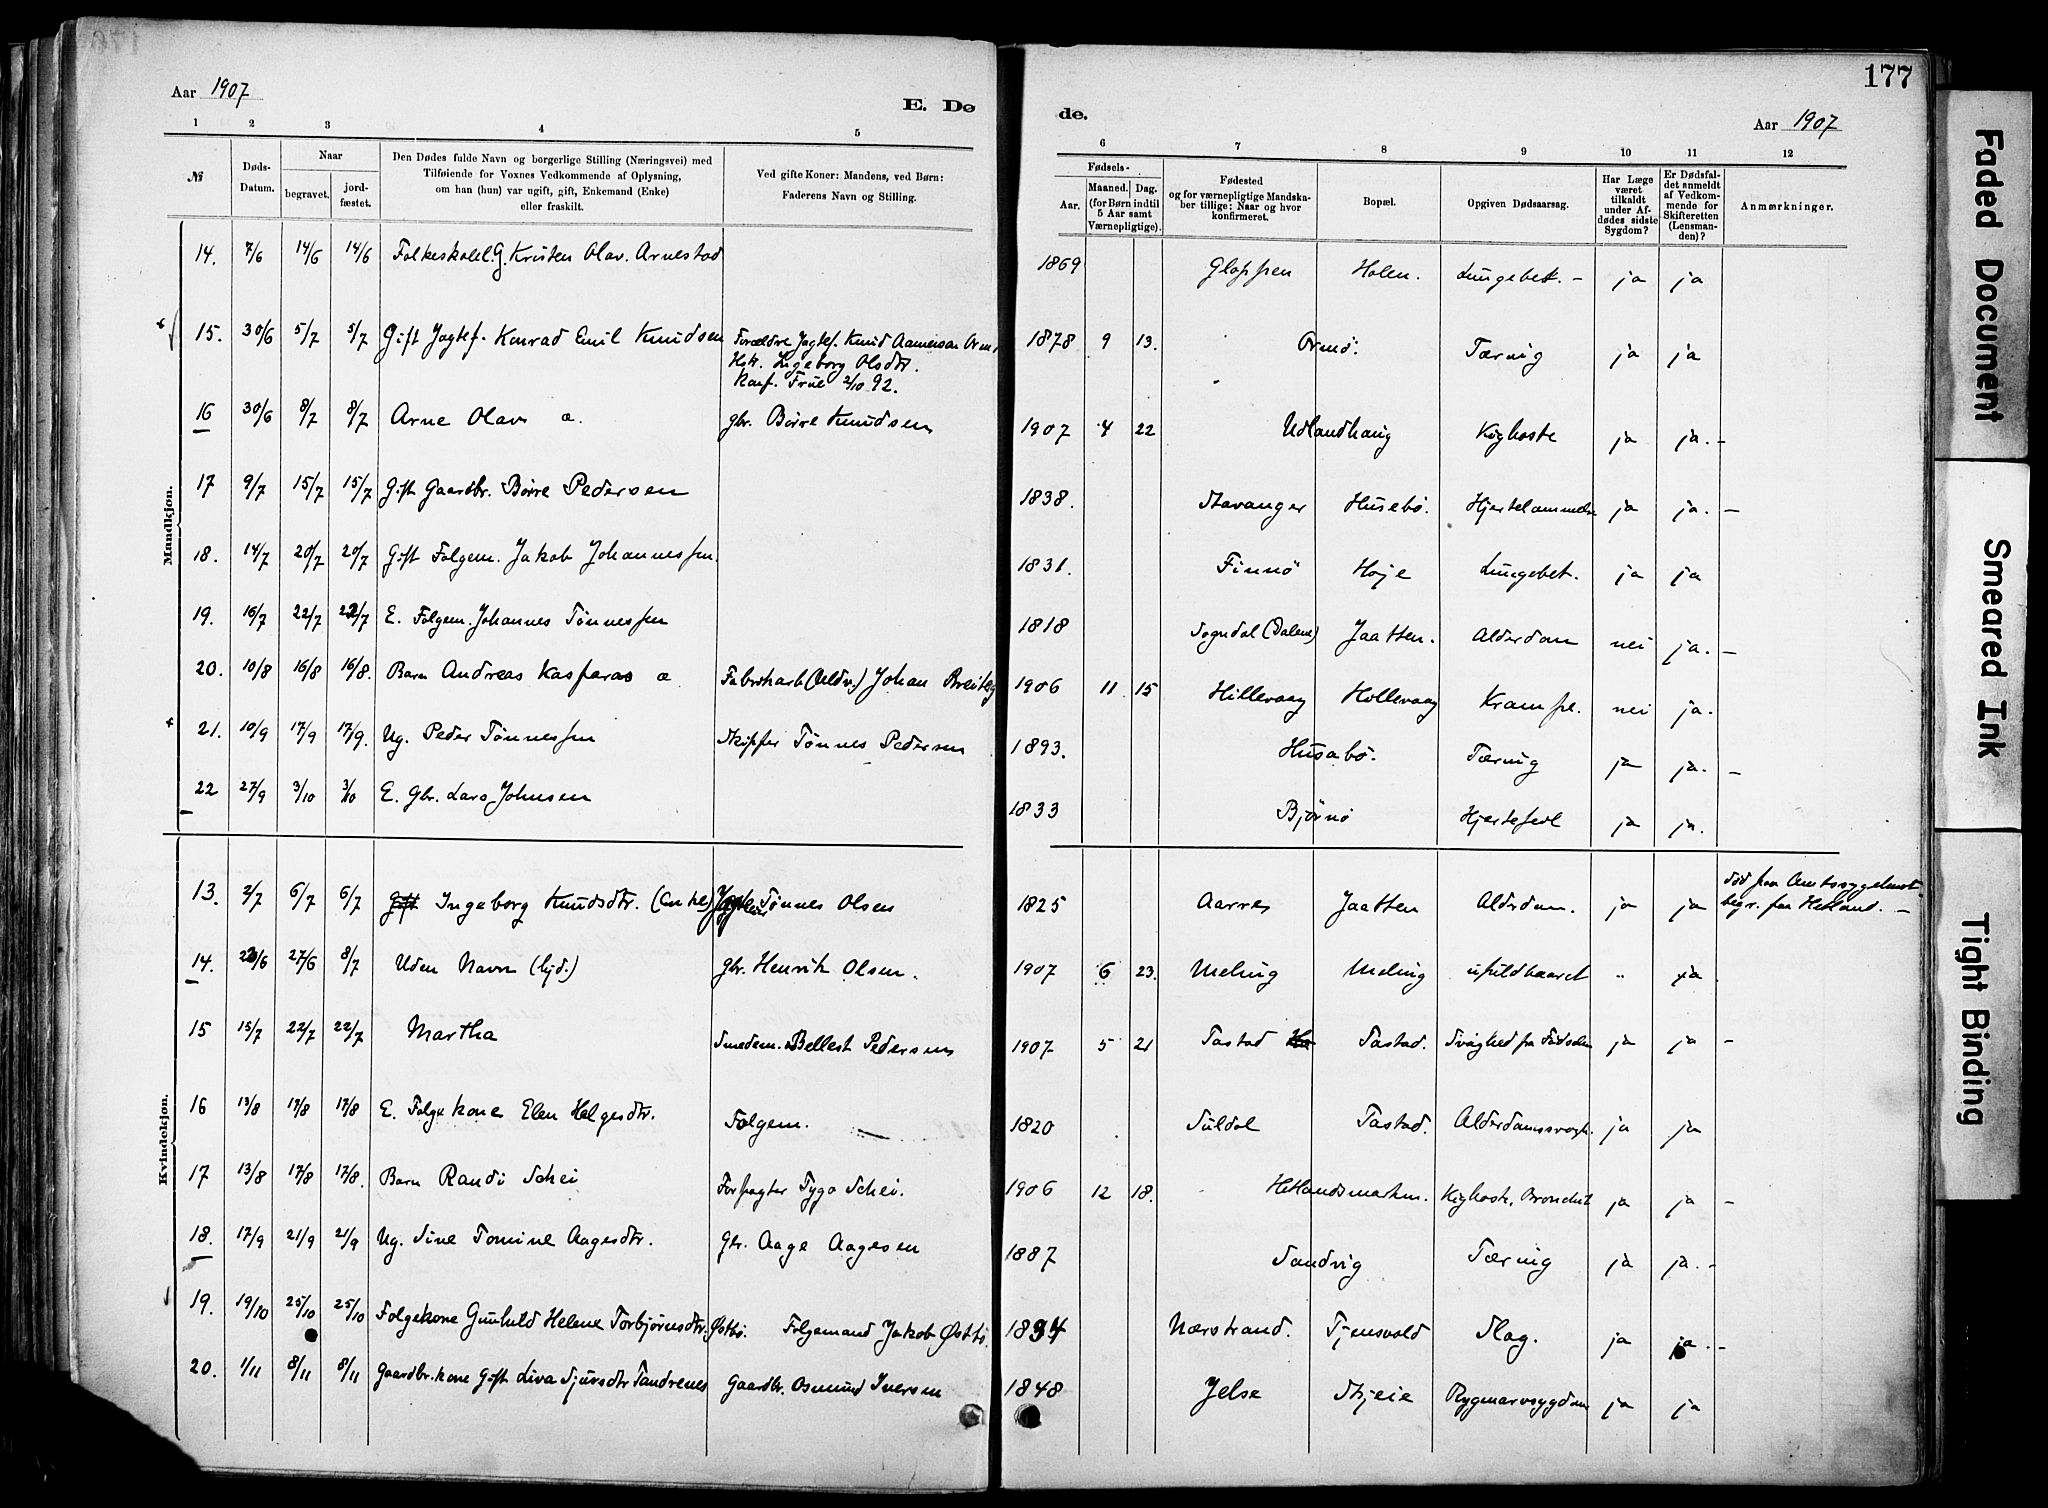 177
Aar 1907
E. Dø
de.
Aar 1907
1 2 3 4 5 6 7 8 9 10 11 12
№
Døds-Datum.
Naar
begravet.
jord-fæstet.
Den Dødes fulde Navn og borgerlige Stilling (Næringsvei) med
Tilføiende for Voxnes Vedkommende af Oplysning,
om han (hun) var ugift, gift, Enkemand (Enke)
eller fraskilt.
Ved gifte Koner: Mandens, ved Børn:
Faderens Navn og Stilling.
Fødsels-
Aar.
Maaned. Dag.
(for Børn indtil
5 Aar samt
Værnepligtige).
Fødested
og for værnepligtige Mandska-
ber tillige: Naar og hvor
konfirmeret.
Bopæl.
Opgiven Dødsaarsag.
Har Læge
været
tilkaldt
under Af-
dødes sidste
Sygdom?
Er Dødsfal-
det anmeldt
af Vedkom-
mende for
Skifteretten
(Lensman-
den)?
Anmærkninger.
Mandkjøn.
14. 7/6 14/6 14/6 Folkeskolel. G. Kristen Olav Arnestad 1869 Gloppen Holen. Lungebet. - ja ja
15. 30/6 5/7 5/7 Gift Jagtef. Konrad Emil Knudsen Forældre Jagtef. Knud Aamunsen 1878 9 13. Ormø. Tæring ja ja
Hstr. Ingeborg Olsdtr.
Konf. Frue 2/10 92.
16 30/6 8/7 8/7 Arne Olav æ. gbr. Børre Knudsen 1907 4 22 Udlandhaug Kighoste ja ja. -
17 9/7 15/7 15/7 Gift Gaardbr. Børre Pedersen 1838. Stavanger Husebø. Hjertelammelse ja ja. -
18. 14/7 20/7 20/7 Gift Folgem. Jakob Johannessen. 1831. Finnø Høje Lungebet. ja ja
19. 16/7 22/7 22/7 E. Folgem. Johannes Tønnessen 1818 Sogndal (Dalene) Jaatten. Alderdom nei ja. -
20. 10/8 16/8 16/8. Barn Andreas Kasparas æ Fabrikarb (Uldv.) Johan 1906 11 15 Hillevaag Hillevaag Krampe. nei ja.
21. 10/9 17/9 17/9. Ug. Peder Tønnessen Skipper Tønnes Pedersen 1893. Husabø. Tæring ja ja. -
22 27/9 3/10 3/10 E. Gbr. Lars Johnsen 1833 Bjørnø Hjertefeil ja ja.
Kvindekjøn.
13. 2/7 6/7 6/7 Gift Ingeborg Knudsdtr. (Enke) Tønnes Olsen 1825 Aarre Jaatten Alderdom. ja ja død paa Amtssygehuset
begr. fra Hetland. -
14. 23/6 27/6 8/7 Uden Navn (hjd.) gbr. Henrik Olsen. 1907 6 23. Meling Meling ufuldbaaret " ja
15 15/7 22/7 22/7 Martha Smedem. Bellest Pedersen 1907 5 21 Tastad Tastad. Svaghed fra Fødselen ja ja -
16 13/8 17/8 17/8 E. Folgekone Elen Helgesdtr. Folgem. 1820 Suldal Tastad. Alderdomssvagh. ja ja
17 13/8 17/8 17/8. Barn Randi Schei Forpagter Tygo Schei. 1906 12 18. Hetlandsmarken. Kighoste, Bronchit ja ja -
18. 17/9 21/9 21/9 Ug. Sine Tomine Aagesdtr. Gbr. Aage Aagesen 1887 Sandvig Tæring ja ja. -
19. 19/10 25/10 25/10 Folgekone Gunhild Helene Torbjørnsdtr. Østbø. Folgemand Jakob Østbø. 1834 Nærstrand. Tjensvold Slag. ja ja. -
20. 1/11 8/11 8/11 Gaardbr. kone Gift Liva Sjursdtr Sandrenes Gaardbr. Osmund Iversen 1848 Jelse Skjeie Rygmarvsygdom ja ja
Faded Document
Smeared Ink
Tight Binding